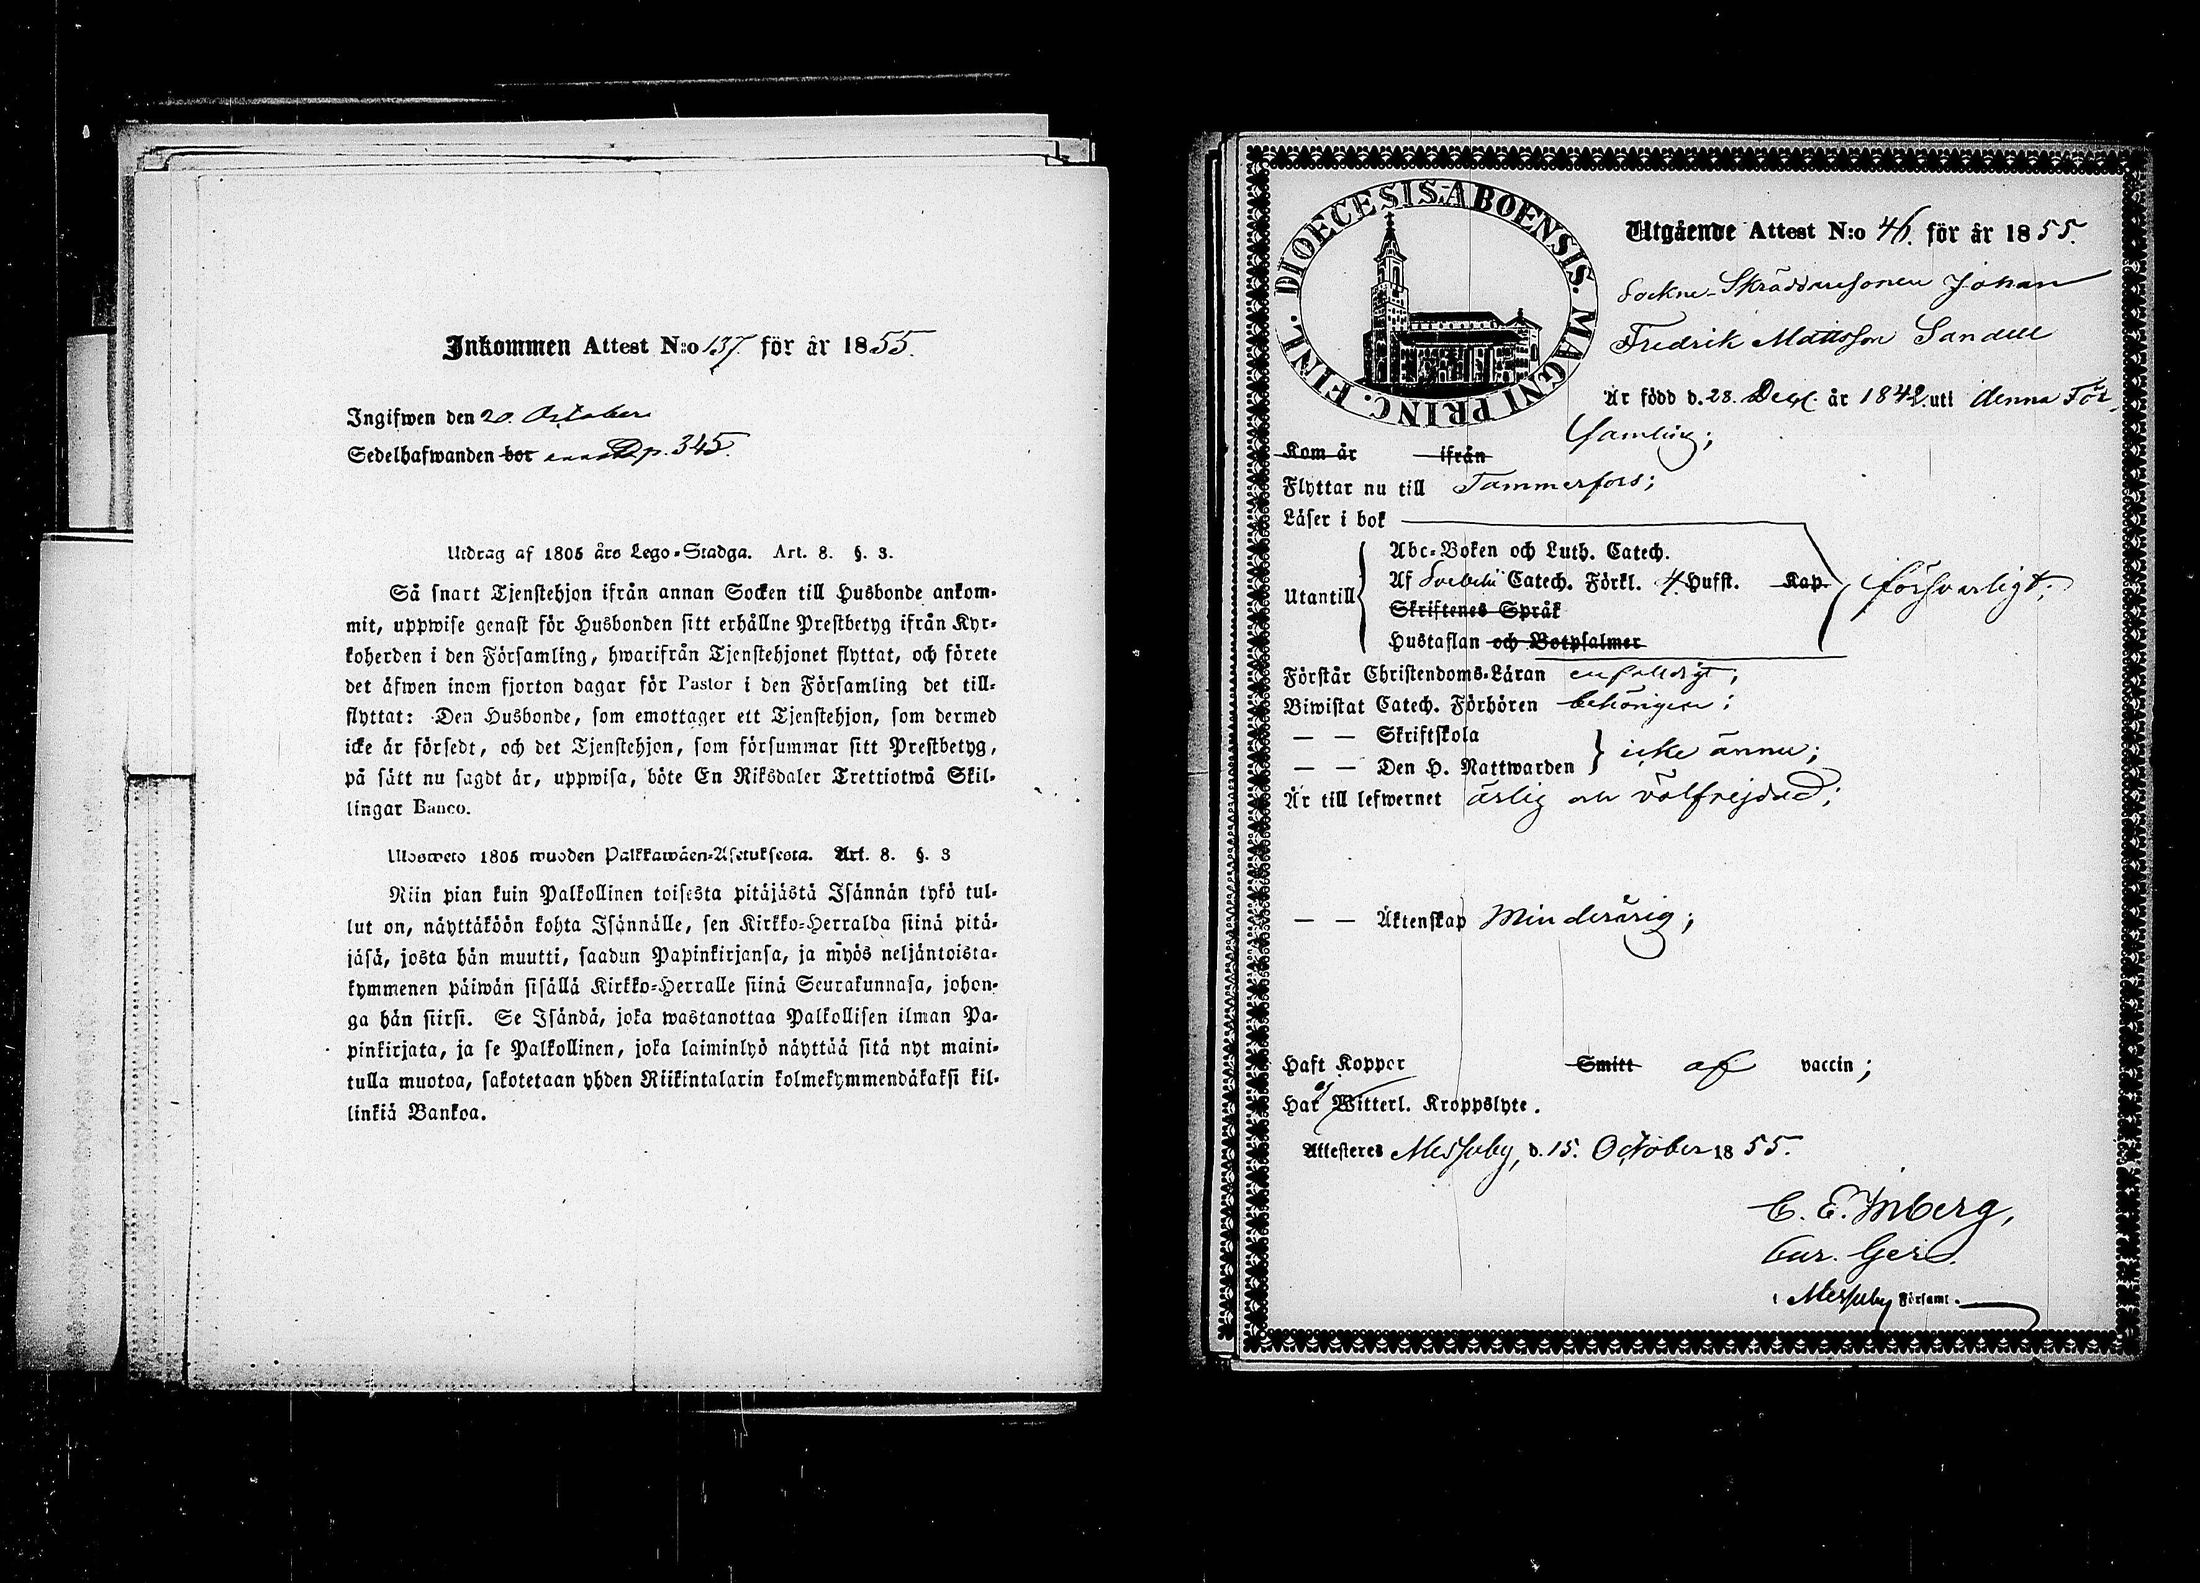 Inkommen Attest N:o 137. för år 1855.
Ingifwen den 20. October
Sedelhafwanden bor p. 345.
Utdrag af 1805 års Lego-Stadga. Art. 8. §. 3.
Så snart Tjenstehjon ifrån annan Socken till Husbonde ankom-
mit, uppwise genast för Husbonden sitt erhållne Prestbetyg ifrån Kyr-
koherden i den Församling, hwarifrån Tjenstehjonet flyttat, och förete
det äfwen inom fjorton dagar för Pastor i den Församling det till-
flyttat: Den Husbonde, som emottager ett Tjenstehjon, som dermed
icke är försedt, och det Tjenstehjon, som försummar sitt Prestbetyg,
på sätt nu sagdt är, uppwisa, böte En Riksdaler Trettiotwå Skil-
lingar Banco.
Ulosweto 1805 wuoden Palkkawäen-Asetuksesta. Art. 8. §. 3
Niin pian kuin Palkollinen toisesta pitäjästä Isännän tykö tul-
lut on, näyttäköön kohta Isännälle, sen Kirkko-Herralda siinä pitä-
jäsä, josta hän muutti, saadun Papinkirjansa, ja myös neljäntoista-
kymmenen päiwän sisällä Kirkko-Herralle siinä Seurakunnasa, johon-
ga hän siirsi. Se Isändä, joka wastanottaa Palkollisen ilman Pa-
pinkirjata, ja se Palkollinen, joka laiminlyö näyttää sitä nyt maini-
tulla muotoa, sakotetaan yhden Riikintalarin kolmekymmendäkaksi kil-
linkiä Bankoa.
DIOECESIS ABOENSIS. MAGNI PRINC. FINL.
Utgående Attest N:o 46. för år 1855.
Sockne-Skräddaresonen Johan
Fredrik Mattsson Sandell
Är född d. 28. Dec. år 1842. uti denna För-
samling;
Kom år ifrån
Flyttar nu till Tammerfors;
Läser i bok
Utantill
Abc-Boken och Luth. Catech.
Af Svebelii Catech. Förkl. 4. Hufst. Kap
Skriftenes Språk
Hustaflan och Botpsalmer
försvarligt;
Förstår Christendoms-Läran enfaldigt;
Biwistat Catech. Förhören behörigen;
— — Skriftskola
— — Den H. Nattwarden
icke ännu;
Är till lefwernet ärlig och välfrejdad;
— — Äktenskap Minderårig;
Haft Koppor Smitt af vaccin;
Har ej Witterl. Kroppslyte.
Attesteres Messuby, d. 15. October 1855.
C. E. Inberg,
Cur. Ger.
i Messuby Församl.